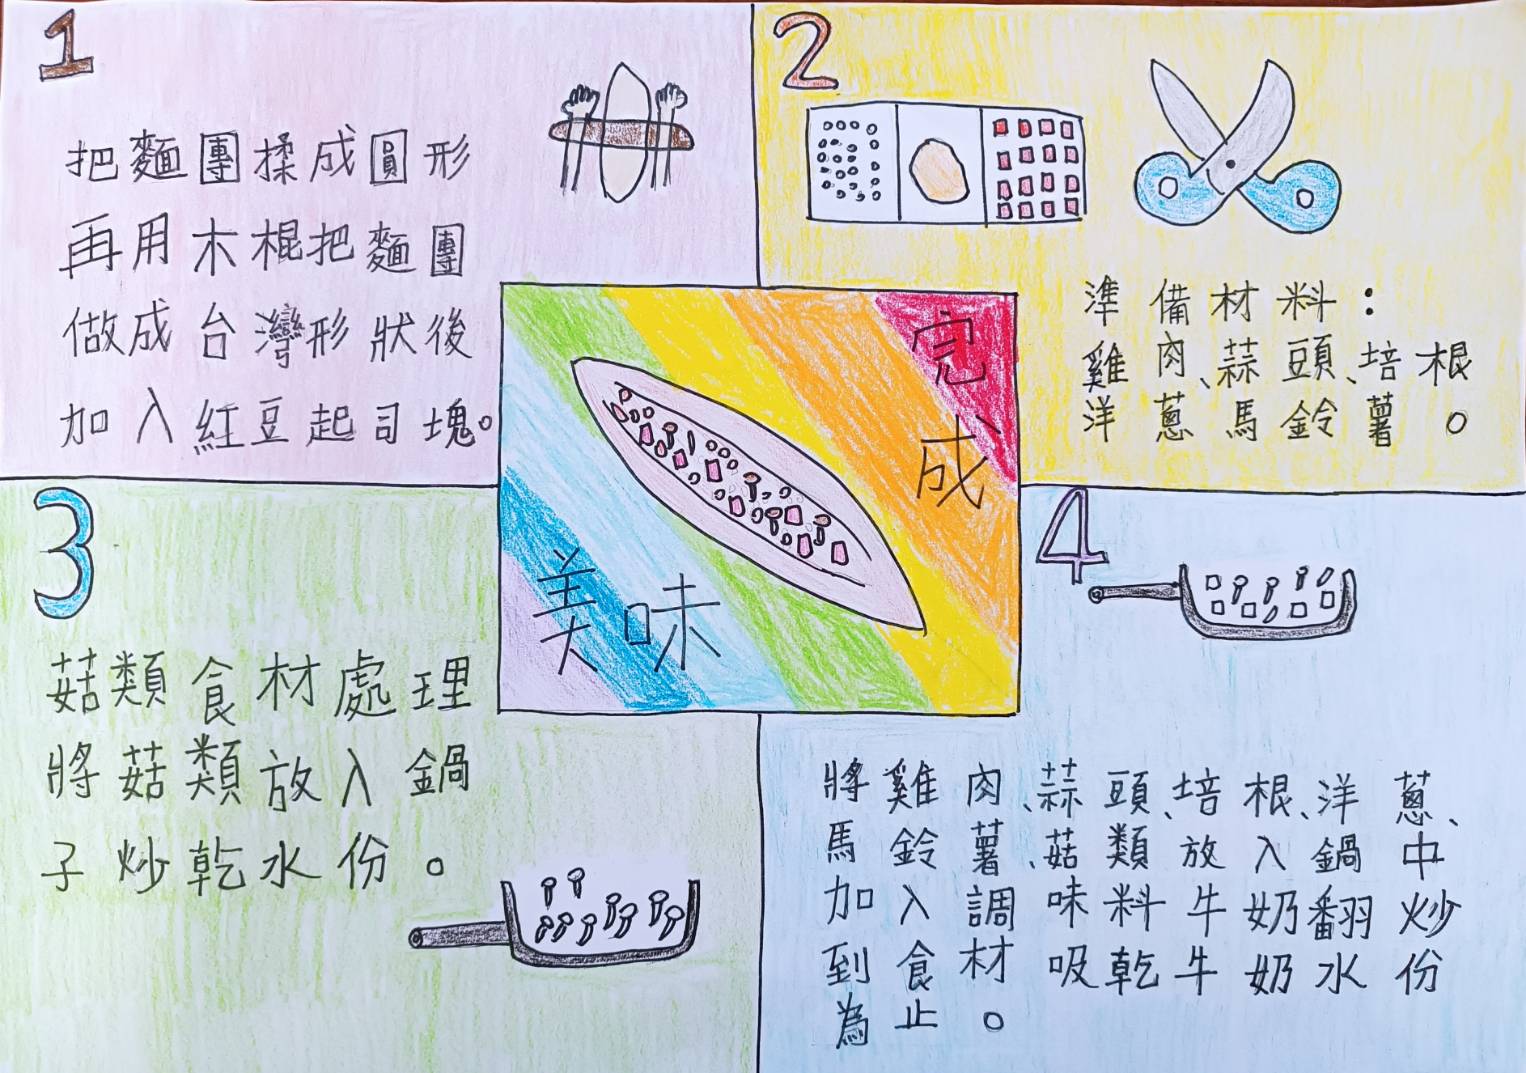 1
把麵團揉成圓形
再用木棍把麵團
做成台灣形狀後
加入紅豆起司塊。
2
準備材料：
雞肉、蒜頭、培根
洋蔥馬鈴薯。
3
菇類食材處理
將菇類放入鍋
子炒乾水份。
4
將雞肉、蒜頭、培根、洋蔥、
馬鈴薯、菇類放入鍋中
加入調味料牛奶翻炒
到食材吸乾牛奶水份
為止。
完成
美味